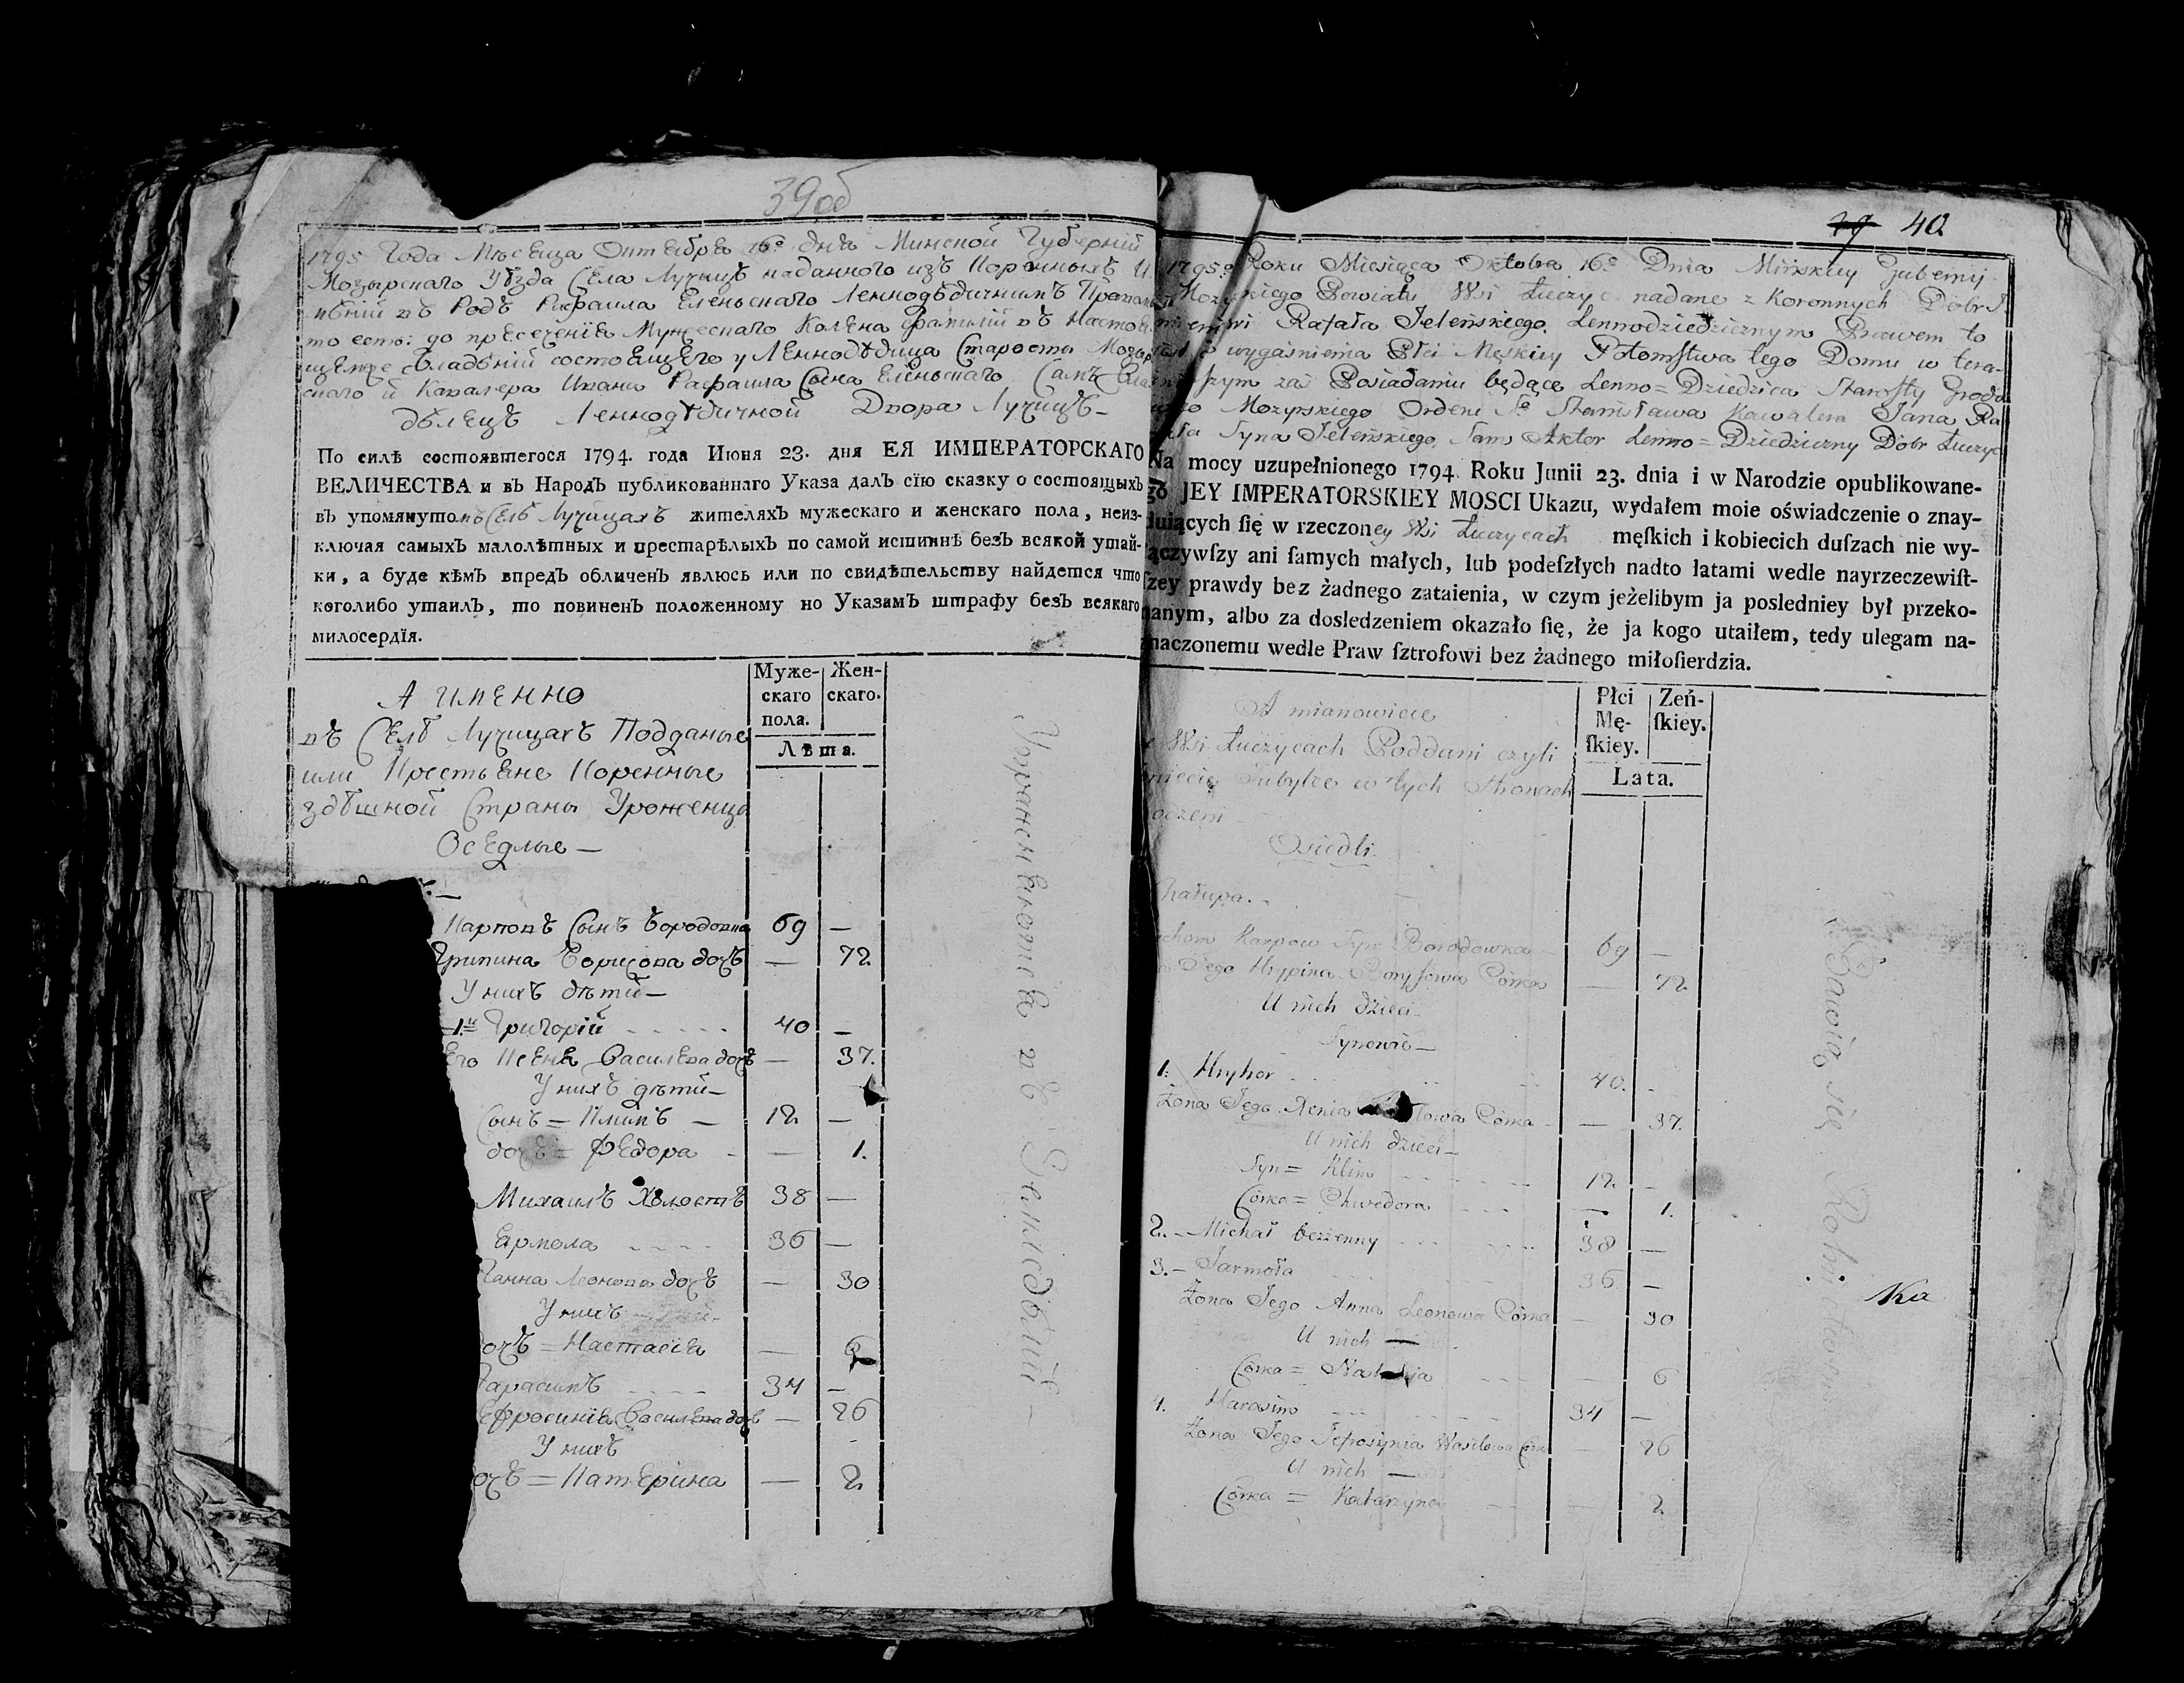 39об
1795 Года Мѣсеца Октебре 16º днѣ Минской Губерній
Мозырского Уѣзда Села Лучицъ наданного изъ Коронныхъ И
нѣній въ Родъ Рафаила Еленьскаго Леннодѣдичнымъ Правомъ
то есть: до пресеченія Мужескаго Колена фамилій въ Настое
щемъ Владѣній состоещего у Леннодѣдица Старосты Мозыр
скаго й Кавалера Ивана Рафаила Сына Еленьскаго Самъ Вла
дѣлецъ Леннодѣдичной Двора Лучицъ —
По силѣ состоявшегося 1794. года Июня 23. дня ЕЯ ИМПЕРАТОРСКАГО
ВЕЛИЧЕСТВА и въ Народъ публикованнаго Указа далъ сїю сказку о состоящыхъ
въ упомянутомъ Селѣ Лучицахъ жителяхъ мужескаго и женскаго пола, неиз-
ключая самыхъ малолѣтныхъ и престарѣлыхъ по самой истиннѣ безъ всякой утай-
ки, а буде кѣмъ впредъ обличенъ явлюсь или по свидѣтельству найдется что
коголибо утаилъ, то повиненъ положенному по Указамъ штрафу безъ всякаго
милосердїя.
Муже-
скаго
пола.
Жен-
скаго.
Лѣта.
А именно
въ Селѣ Лучицахъ Подданые
или Крестьяне Коренные
здѣшной Страны Уроженцы
Оседлые —
Карповъ Сынъ Бородовка 69 —
Грипина Борисова дочь — 72
У нихъ дѣтй —
1й Григорій 40 —
Его Ксеня Василева дочь — 37.
У нихъ дѣтй —
Сынъ = Климъ — 12 —
дочь = Федора — 1.
Михаилъ Холостъ 38 —
Ермола 36 —
Ганна Леонова дочь — 30
У нихъ
очь = Настасія — 6
Гарасимъ 34 —
Ефросинія Василева дочь — 26
У нихъ
очь = Катерина — 2
29 40
1795º Roku Miesiąca Oktobra 16º Dnia Mińskiey Gubernij
Mozyrskiego Powiatu Wsi Łuczyc nadane z Koronnych Dobr
Rafała Jeleńskiego, Lennodziedzicznym Prawem to
wygaśnienia Płci Męskiey Potomstwa tego Domu w tera-
szym zaś Posiadaniu będące Lenno=Dziedzica Starosty Grodo
Mozyrskiego Orderu Sº Stanisława Kawalera Jana Ra
ła Syna Jeleńskiego, Sam Aktor Lenno=Dziedziczny Dobr Łuczyc
Na mocy uzupełnionego 1794 Roku Junii 23. dnia i w Narodzie opublikowane-
go JEY IMPERATORSKIEY MOSCI Ukazu, wydałem moie oświadczenie o znay-
duiących ſię w rzeczoney Wsi Łuczycach męſkich i kobiecich duſzach nie wy-
ączywſzy ani ſamych małych, lub podeſzłych nadto latami wedle nayrzeczewiſt-
ſzey prawdy bez żadnego zataienia, w czym jeżelibym ja posledniey był przeko-
nanym, albo za dosledzeniem okazało ſię, że ja kogo utaiłem, tedy ulegam na-
znaczonemu wedle Praw ſztrofowi bez żadnego miłoſierdzia.
Płci
Mę-
ſkiey.
Zeń-
ſkiey.
Lata.
A mianowicie
Wsi Łuczycach Poddani czyli
Tubylce w tych Stronach
odzeni
Osiedli.
Chałupa. —
Karpow Syn Borodowka 69 —
Jego Hrypina Borysowa Córka — 72
U nich dzieci —
Synowie —
1. Hryhor 40. —
Żona Jego Xenia Córka — 37.
U nich dzieci —
Syn = Klim 12 —
Córka = Chwedora — 1.
2. — Michał bezżenny 38 —
3. — Jarmoła 36 —
Żona Jego Anna Leonowa Córka — 30
U nich —
Córka = — 6
4. Harasim 34 —
Żona Jego Jefrosynia Wasilowa Córka — 26
U nich —
Córka = Katarzyna — 2
Ka